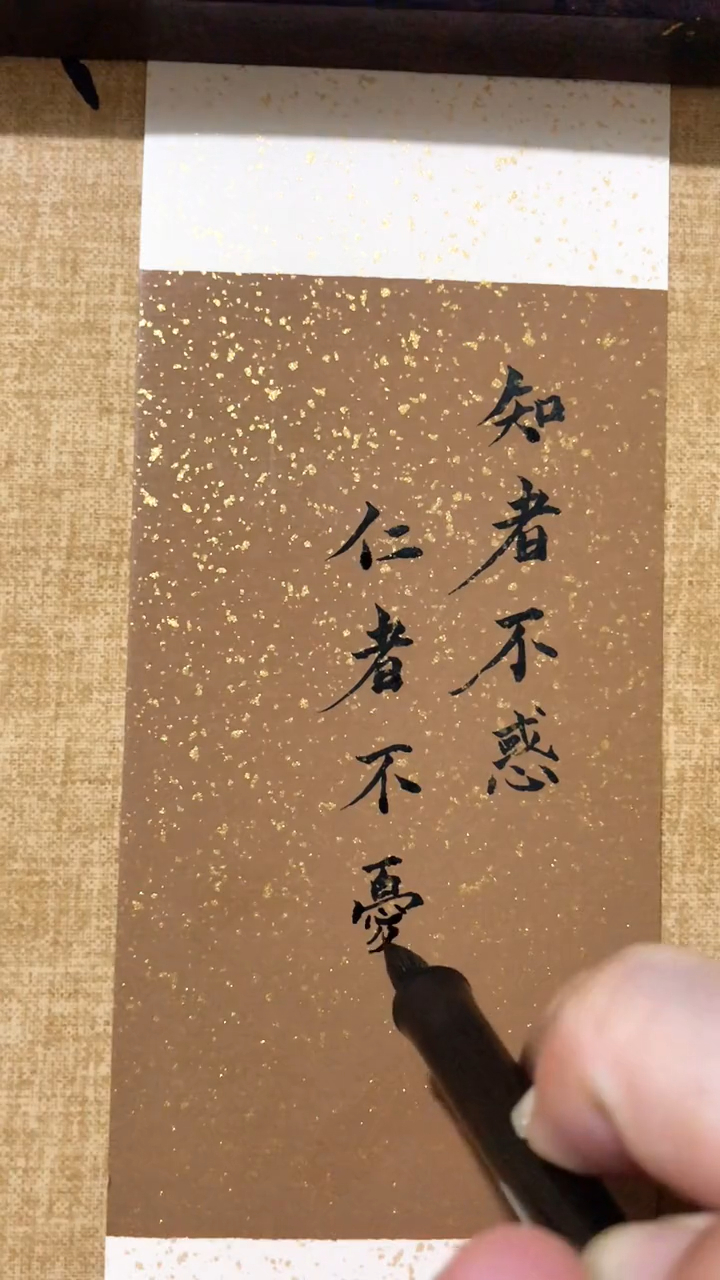 知者不惑
仁者不憂